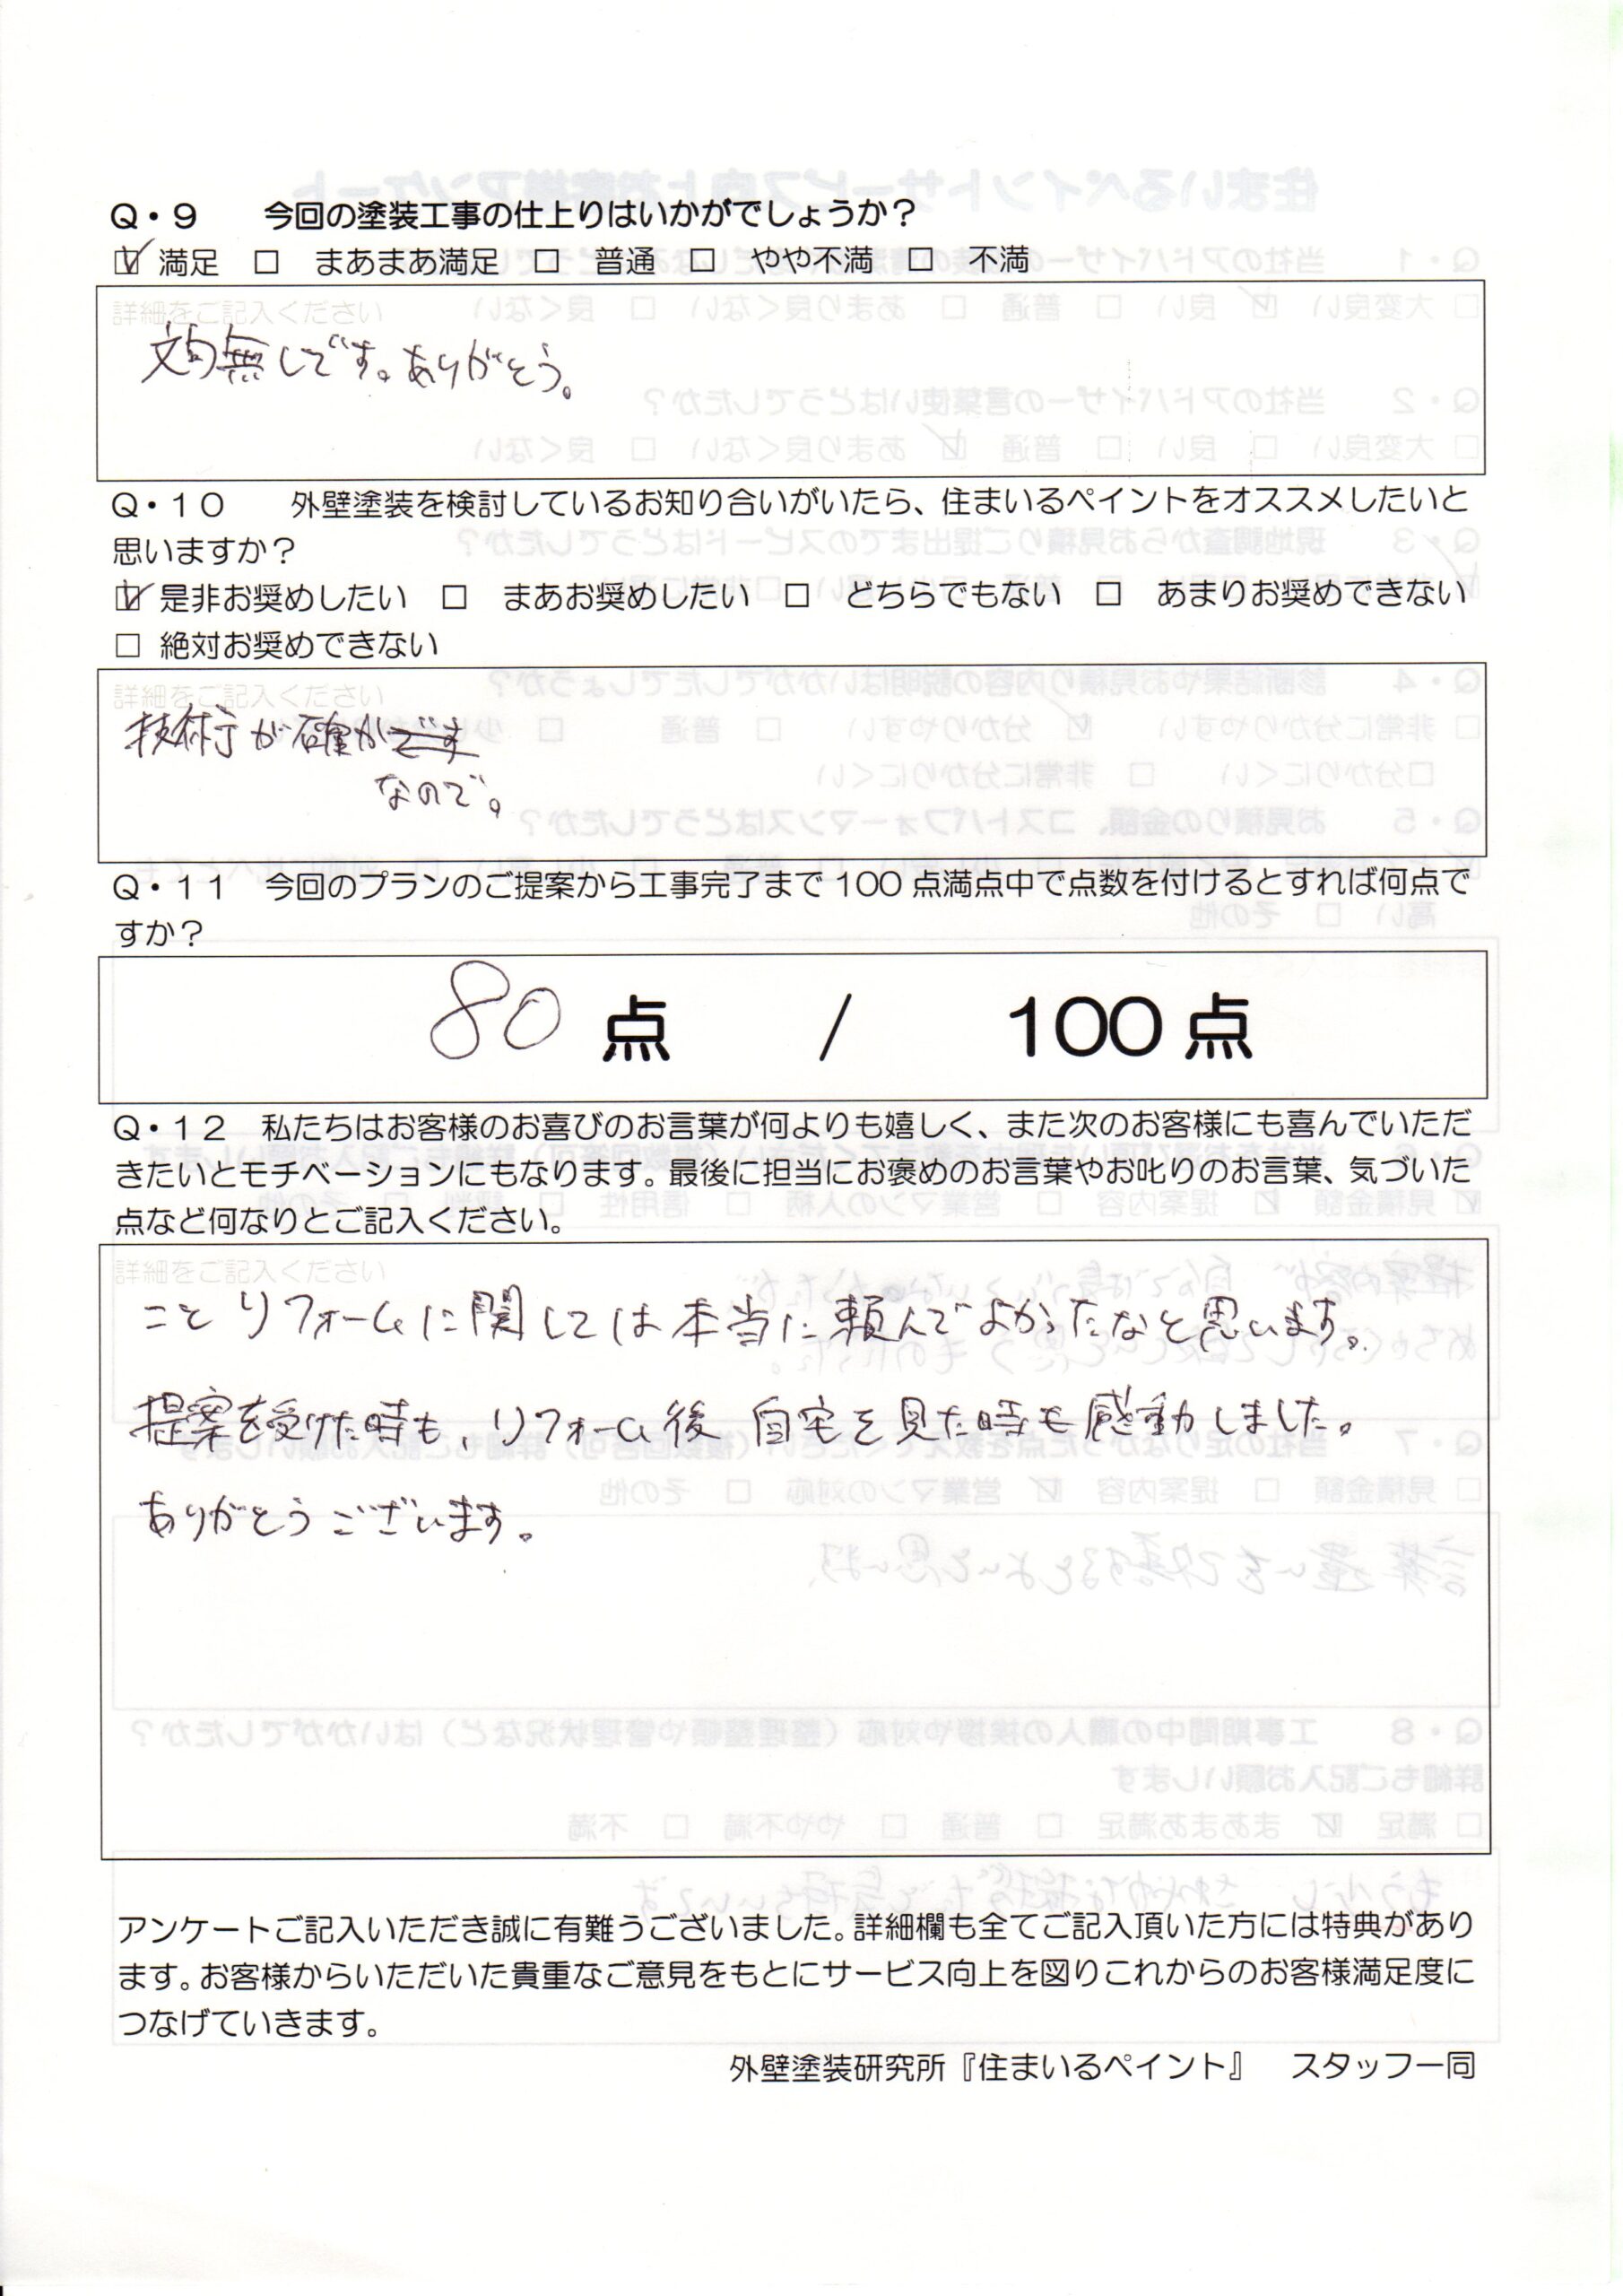 Q・9　今回の塗装工事の仕上りはいかがでしょうか？
☑ 満足　□　まあまあ満足　□　普通　□　やや不満　□　不満
詳細をご記入ください
文句無しです。ありがとう。
Q・10　外壁塗装を検討しているお知り合いがいたら、住まいるペイントをオススメしたいと
思いますか？
☑ 是非お奨めしたい　□　まあお奨めしたい　□　どちらでもない　□　あまりお奨めできない
□ 絶対お奨めできない
詳細をご記入ください
技術が確かです
なので。
Q・11　今回のプランのご提案から工事完了まで100点満点中で点数を付けるとすれば何点で
すか？
80点　/　100点
Q・12　私たちはお客様のお喜びのお言葉が何よりも嬉しく、また次のお客様にも喜んでいただ
きたいとモチベーションにもなります。最後に担当にお褒めのお言葉やお叱りのお言葉、気づいた
点など何なりとご記入ください。
詳細をご記入ください
ことリフォームに関しては本当に頼んでよかったなと思います。
提案を受けた時も、リフォーム後 自宅を見た時も感動しました。
ありがとうございます。
アンケートご記入いただき誠に有難うございました。詳細欄も全てご記入頂いた方には特典があり
ます。お客様からいただいた貴重なご意見をもとにサービス向上を図りこれからのお客様満足度に
つなげていきます。
外壁塗装研究所『住まいるペイント』　スタッフ一同